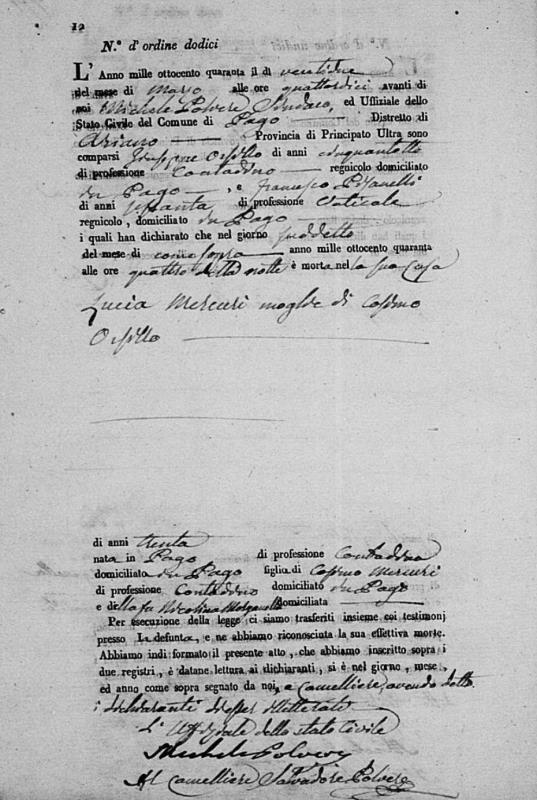 12
N.º d'ordine dodici
L'Anno mille ottocento quaranta il dì ventidue
del mese di Marzo alle ore quattordici avanti di
noi Michele Polvere Sindaco, ed Uffiziale dello
Stato Civile del Comune di Pago Distretto di
Ariano Provincia di Principato Ultra sono
comparsi Giuseppe Orsillo di anni cinquantotto
di professione Contadino regnicolo domiciliato
in Pago, e Francesco Pisanelli
di anni sessanta di professione Vaticale
regnicolo, domiciliato in Pago
i quali han dichiarato che nel giorno suddetto
del mese di come sopra anno mille ottocento quaranta
alle ore quattro della notte è morta nella sua Casa
Lucia Mercuri moglie di Cosimo
Orsillo
di anni trenta
nata in Pago di professione Contadina
domiciliata in Pago figlia di Cosimo Mercuri
di professione Contadino domiciliato in Pago
e della fu Nicolina domiciliata
Per esecuzione della legge ci siamo trasferiti insieme coi testimonj
presso la defunta, e ne abbiamo riconosciuta la sua effettiva morte.
Abbiamo indi formato il presente atto, che abbiamo inscritto sopra i
due registri, e datane lettura ai dichiaranti, si è nel giorno, mese,
ed anno come sopra segnato da noi, e Cancelliere, avendo detto
i dichiaranti essere illetterati
L'Uffiziale dello stato Civile
Michele Polvere
Il Cancelliere Salvadore Polvere